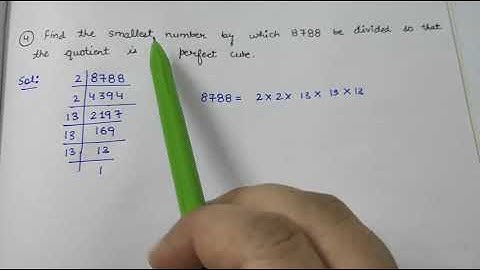 4 Find the smallest number by which 8788 be divided so that
the quotient is perfect cube.
Sol:
2 8788
2 4394
13 2197
13 169
13 13
1
8788 = 2 × 2 × 13 × 13 × 13